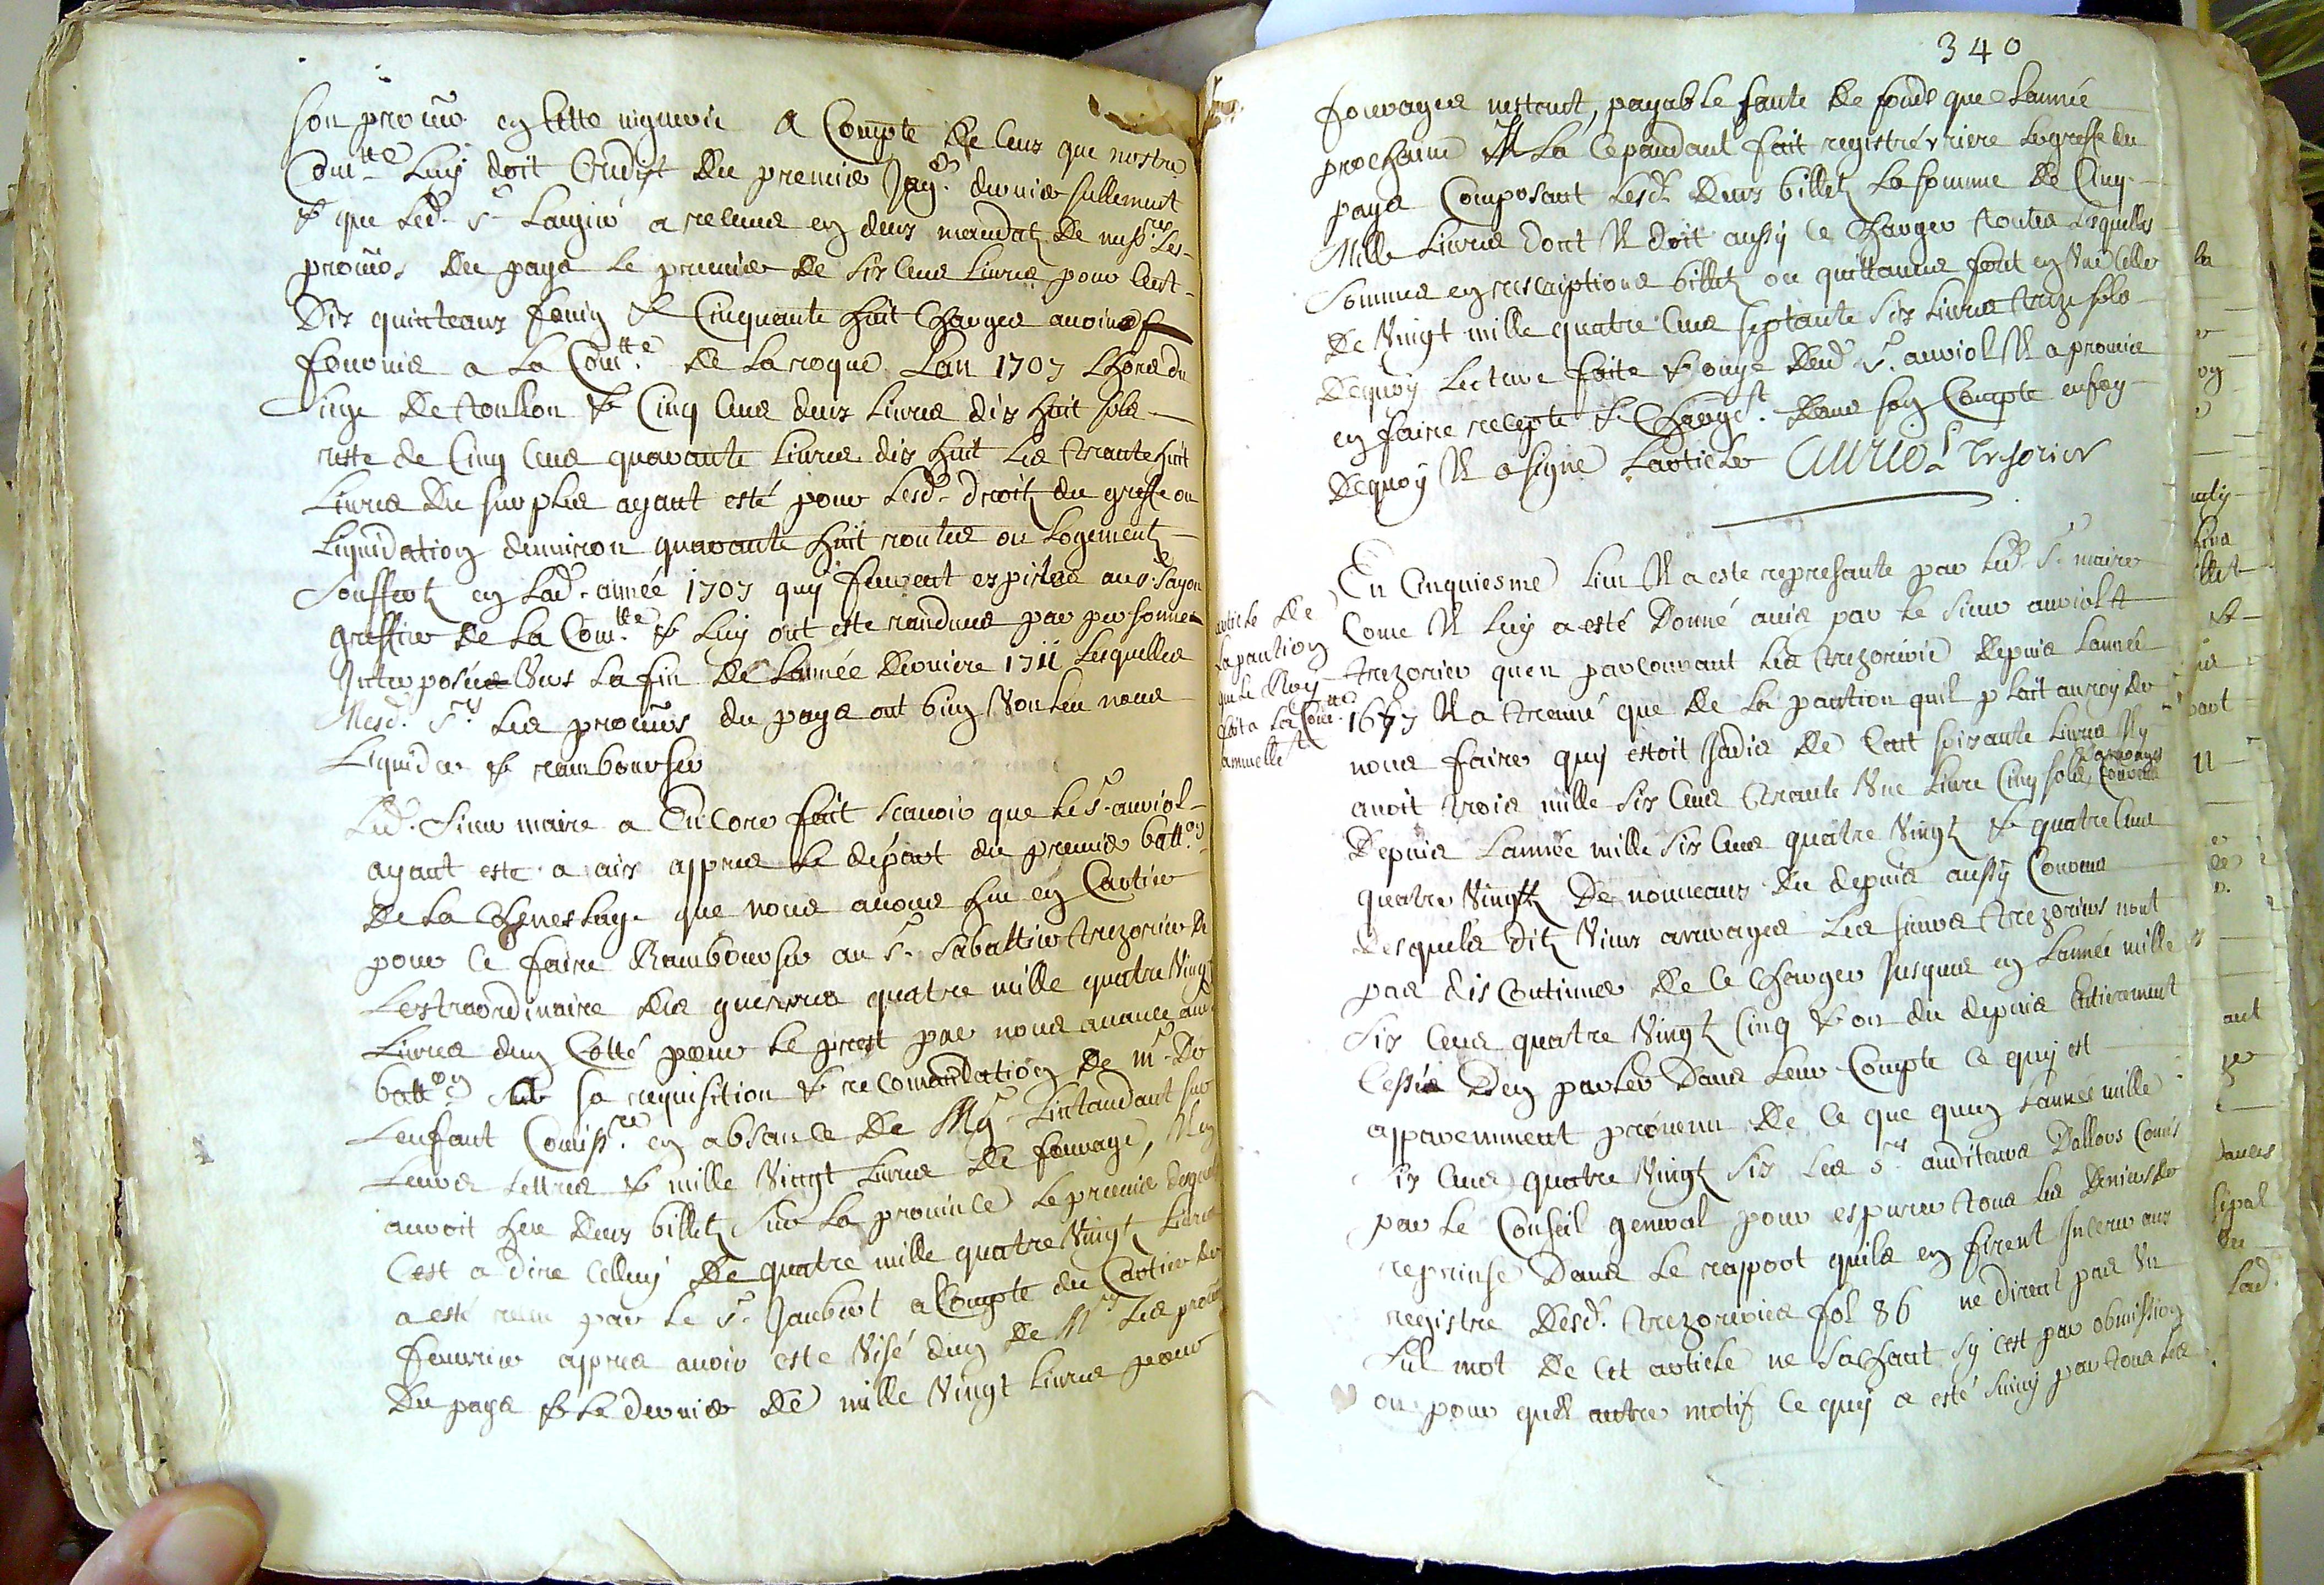 son proceu en cette vigueric a Compte de ceus que nostre
Com.tte luy doit Credist du premier Jan.er dernier sullement
& que led. s.r Laugier a receues en deus mandatz de mess.rs les
procurs. du pays le premier de six cens livres pour cent
dix quinteaus foing & Cinquante huit Charges avoine
fournie a la Com.tte de La roque Lan 1707 Lhors du
Siege de toullon & Cinq cens deus livres dix huit sols
reste de Cinq cens quarante livres dix huit Les trante huit
livres du surplus ayant esté pour lesd. droitz du greffe ou
Liquidation denviron quarante huit routes ou Logementz
Souffertz en lad. année 1707 quy feurent expirées aus sayon
greffier de la Com.tte & luy ont este randues par personnes
Interposées vers la fin de Lannée derniere 1711 Lesquelles
Mesd. s.rs les procurs du pays ont bien voulleu nous
Liquider & rambourser
Led. sieur maire a Encore fait scavoir que le s.r auriol
ayant este a aix appres le départ du premier batt.on
de la Cheneslaye que nous avons heu en Cartier
pour ce faire Rambourser au s.r Sabattier trezorier de
Lestraordinaire des guerres quatre mille quatre vingt
Livres dun Cotté pour le prest par nous avancé au
batt.on sa requisition & recomandation de m.r de
Lenfant Comiss.re en absance de Mg.r Lintandant sur
leurs lettres & mille vingt livres de fourage, Il en
auroit heu deus billetz sur la province le premier
Cest a dire celluy de quatre mille quatre vingtz livres
a esté receu par le s.r Jaubert a Compte du Cartier de
fevrier appres avoir este visé dun de M.rs Les procurs
du pays & le dernier de mille vingt livres pour
340
fourages restant, payable faute de fonds que Lannée
prochaine Il la cepandant fait registré rriere le greffe du
pays Composant lesd. deus billetz la somme de Cinq
Mille Livres dont Il doit aussy ce charger toutes lesquelles
Sommes en rescriptions billetz ou quittances font en une celle
de vingt mille quatre cens septante six livres treze sols
dequoy Lecture faite & ouye dud. s.r auriol Il a promis
en faire recepte & Charg.t dans son Compte enfoy
dequoy Il a signé Larticle Auriol Tresorier
article de
la pantion
que le Roy
fait a la Com.tte
annuellem.t
En Cinquiesme lieu Il a este represante par led. s.r maire
Come Il luy a esté donné avis par le sieur auriol
trezorier quen parcourant les trezoreries depuis Lannée
1677 Il a treuvé que de la pantion quil plait au roy de
nous faire quy estoit jadis de Cent soixante livres Il y
avoit trois mille six cens trante une livre Cinq sols darrerages Convenus
depuis Lannée mille six cens quatre vingtz & quatre cens
quatre vingtz de nouveaus du depuis aussy Convenus
desquels ditz vieux arrerages Les sieurs trezoriers nont
pas discontinues de ce charger Jusques en Lannée mille
Six cens quatre vingtz Cinq & on du depuis Entierement
Cessés den parler dans leur Compte ce quy est
apparemment prévenu de ce que quen Lannée mille
six cens quatre vingtz six Les s.rs auditeurs dallors Comis
par le Conseil general pour espurer tous les deniers de
reprinse dans le rapport quils en firent Incerer aus
registre desd. trezoreries fol 86 ne dirent pas un
sul mot de cet article ne sachant sy cest par obmission
ou pour quel autre motif ce quy a esté suivy par tous les